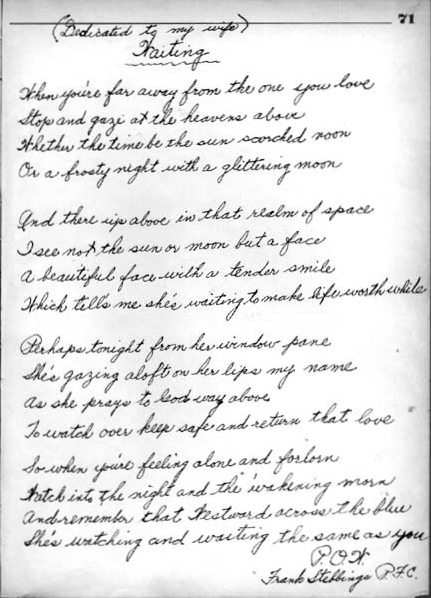 71
(Dedicated to my wife)
Waiting
When you're far away from the one you love
Stop and gaze at the heavens above
Whether the time be the sun scorched noon
Or a frosty night with a glittering moon
And there up above in that realm of space
I see not the sun or moon but a face
A beautiful face with a tender smile
Which tell's me she's waiting to make life worth while
Perhaps tonight from her window pane
She's gazing aloft on her lips my name
As she prays to God way above
To watch over keep safe and return that love
So when you're feeling alone and forlorn
Watch into the night and the 'wakening morn
And remember that Westward across the blue
She's watching and waiting the same as you
P.O.W.
Frank Stebbings P.F.C.